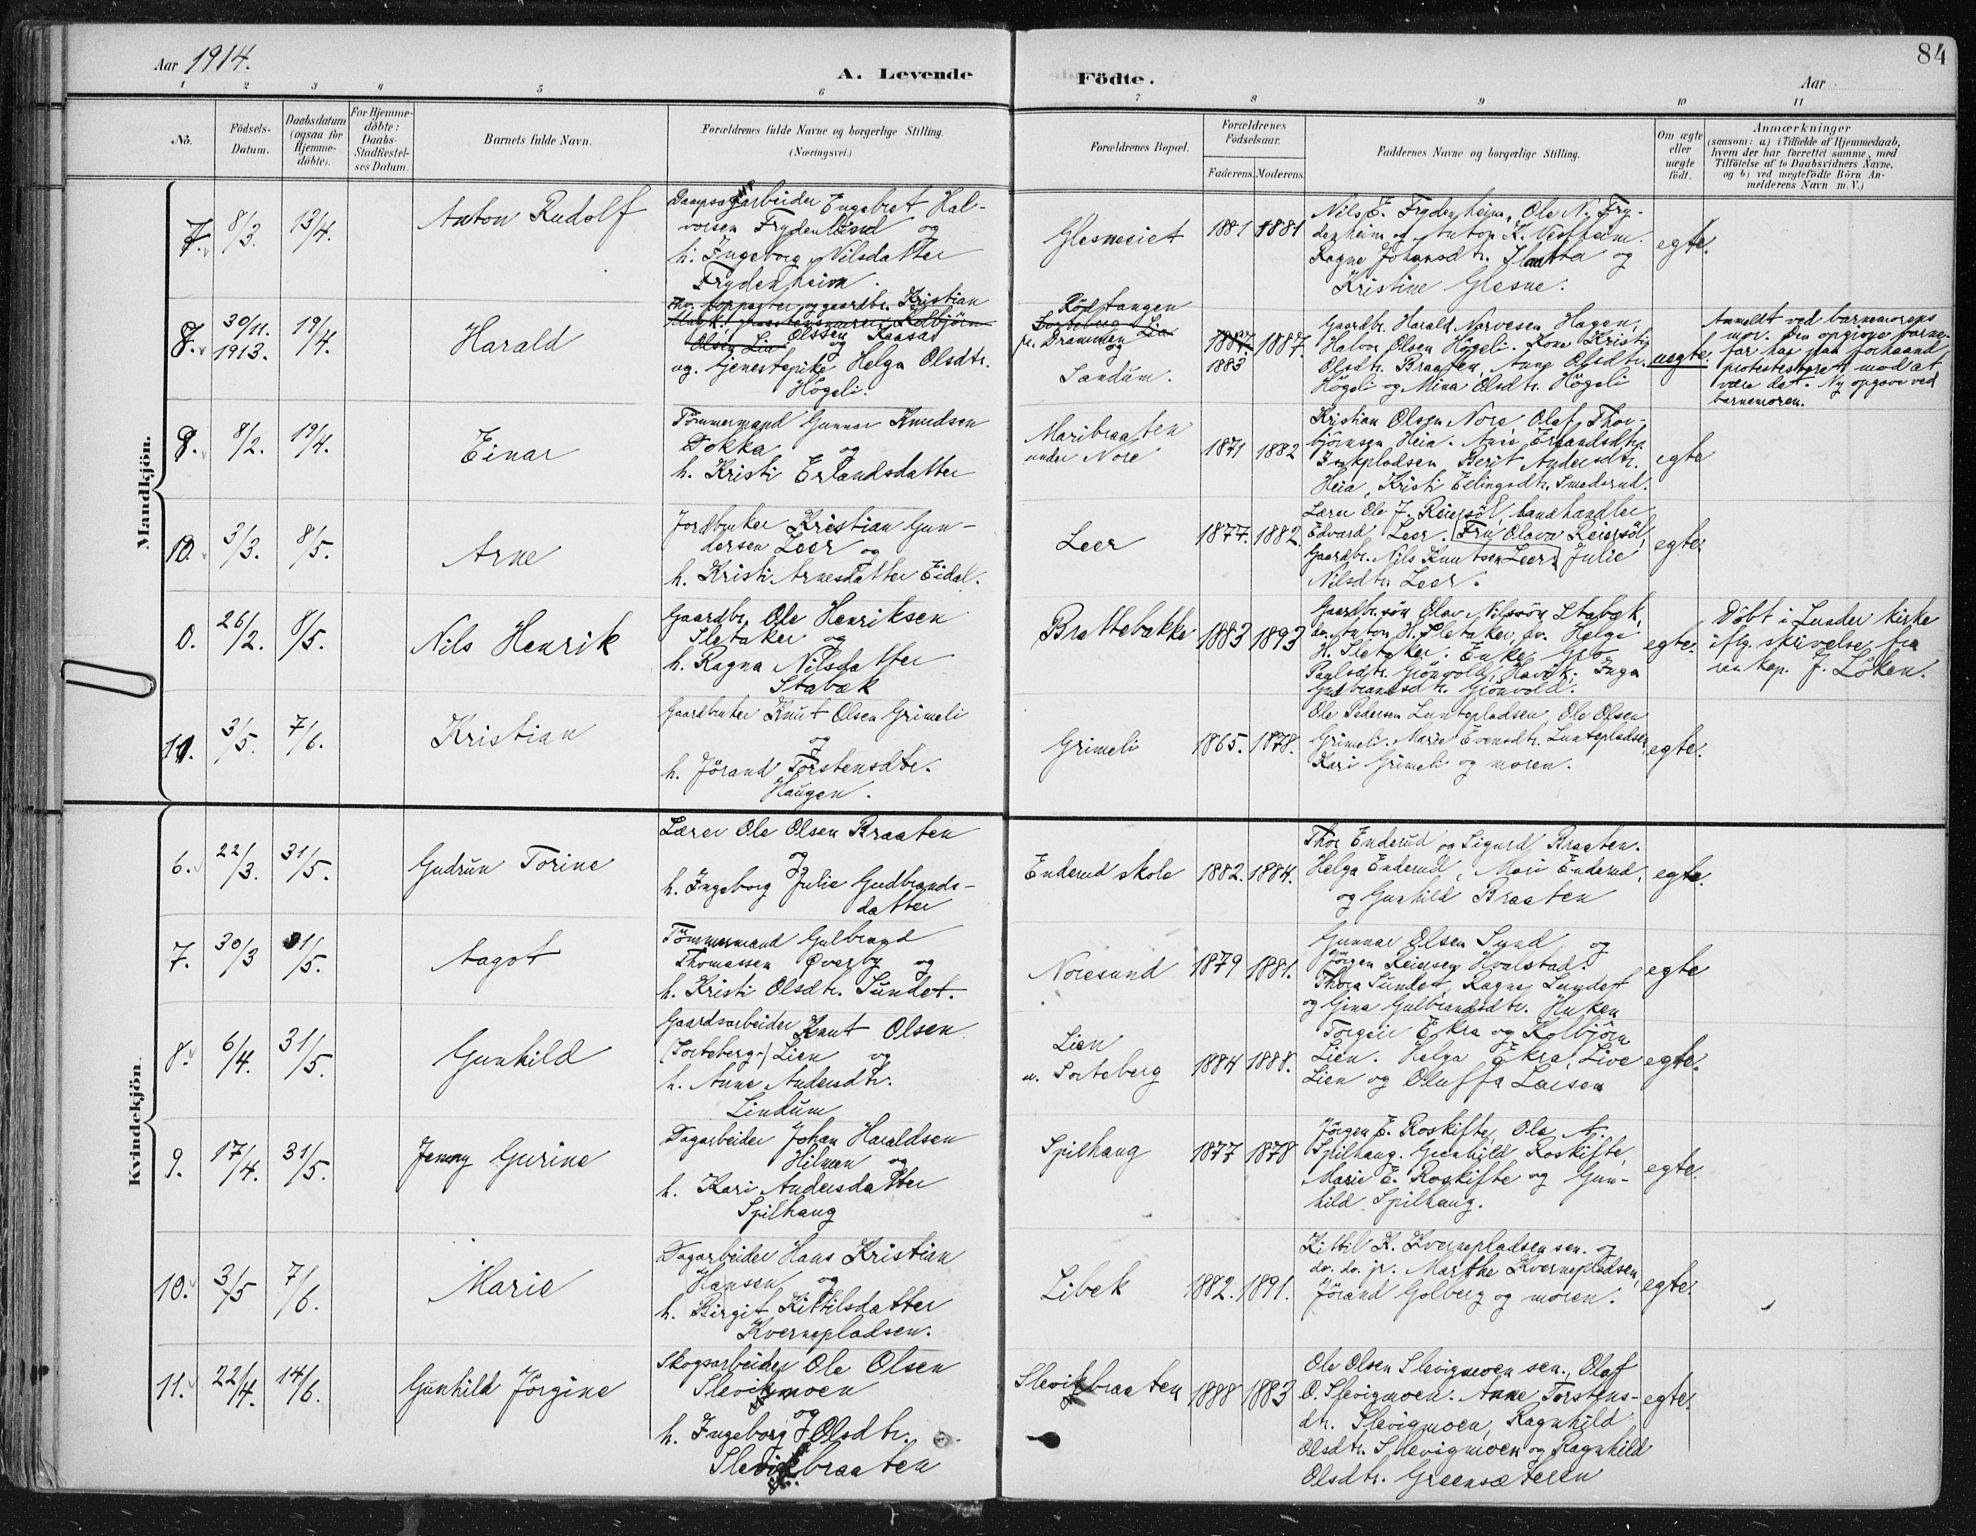 84
Aar 1914.
A. Levende Födte.
Aar
1 2 3 4 5 6 7 8 9 10 11
No.
Födsels-Datum.
Daabsdatum (ogsaa for Hjemme-döbte).
For Hjemme-döbte: Daabs-Stadfæstel-ses Datum.
Barnets fulde Navn.
Forældrenes fulde Navne og borgerlige Stilling. (Næringsvei.)
Forældrenes Bopæl.
Forældrenes Födselsaar.
Faderens. Moderens.
Faddernes Navne og borgerlige Stilling.
Om ægte eller uægte födt.
Anmærkninger
(saasom: a) i Tilfælde af Hjemmedaab, hvem der har forrettet samme, med Tilföielse af to Daabsvidners Navne, og b) ved uægtefödte Börn An-melderens Navn m. V.)
Mandkjön.
7. 8/3. 13/4. Anton Rudolf
arbeider Engebret Hal-
vorsen Frydenlund og
h. Ingeborg Nilsdatter
Frydenheim.
Glesnesiet 1881 1881
Nils E. Frydenheim, Ole N. Fry-
denheim og Anton K. Vestheim.
Ragne Johansdtr. Slaatta og
Kristine Glesne.
egte.
8. 30/11. 1913. 19/4. Harald
og gaardbr. Kristian
Olssen Kaasas
Olsen Lia og
ug. tjenestepike Helga Olsdtr.
Högeli.
Rödtangen
pr. Drammen
og
Sandum.
1887. 1887.
1883
Gaardbr. Harald Narvesen Hagen,
Halvor Olsen Högeli. Kone Kristi
Olsdtr. Braaten, Anne Olsdtr.
Högeli og Mina Olsdtr. Högeli
uegte.
Anmeldt ved barnemorens
mor. Den opgivne barne-
far har paa forhaand
protestert mod at
være det. Ny opgave ved
barnemoren.
9. 8/2. 19/4. Einar
Tömmermand Gunnar Knudsen
Dokka og
h. Kristi Erlandsdatter
Maribraaten
under Nore
1871 1882
Kristian Olsen Nore, Olaf Thor-
björnsen Heia. Anne Erlandsdtr.
Berit Andersdtr.
Heia, Kristi Ellingsdtr. Smedsrud.
egte
10. 3/3. 8/5. Arne
Jordbruker Kristian Gun-
dersen Leer og
h. Kristi Arnesdatter Eidal.
Leer 1877. 1882.
Lærer Ole J. Reiersöl, handelsmand
Edvard Leer. Fru Olava Reiersöl,
Gaardbr. Nils Knutsen Leer, Julie
Nilsdtr Leer.
egte.
0. 26/2. 8/5. Nils Henrik
Gaardbr. Ole Henriksen
Sletaker og
h. Ragna Nilsdatter
Stabæk
Brattebakke 1883 1893
Gaardbr.sön Olav Nilssön Stabæk,
do. Anton H. Sletaker, do. Helge
H. Sletaker. Enke Gro
Paulsdtr. Grönvold, Havik. Inga
Gulbrandsdtr. Grönvold.
egte.
Döbt i Lunder kirke
iflg. skrivelse fra
res. kap. J. Löken.
11. 3/5. 7/6. Kristian
Gaardbruker Knut Olsen Grimeli
og
h. Jörand Torstensdtr.
Haugen.
Grimeli 1865. 1878.
Ole Pedersen Luntepladsen, Ole Olsen
Grimeli. Marie Evensdtr. Luntepladsen,
Kari Grimeli og moren.
egte.
Kvindekjön.
6. 22/3. 31/5. Gudrun Torine
Lærer Ole Olsen Braaten
og
h. Ingeborg Julie Gudbrands-
datter
Enderud skole 1882. 1884.
Thor Enderud og Sigurd Braaten.
Helga Enderud, Mari Enderud,
og Gunhild Braaten
egte.
7. 30/3 31/5. Aagot
Tömmermand Gulbrand
Thomassen Överby og
h. Kristi Olsdtr. Sundet.
Noresund 1879 1881.
Gunnar Olsen Sund og
Jörgen Reiersen Hvalstad.
Thora Sundet, Ragne Sundet
og Gina Gulbrandsdtr. Huken
egte
8. 6/4. 31/5. Gunhild
Gaardsarbeider Knut Olsen
(Sorteberg-) Lien og
h. Anne Andersdtr.
Lindum
Lien
u. Sorteberg
1884 1888.
Torgeir Ekra og Kolbjörn
Lien. Helga Ekra, Live
Lien og Oluffa Larsen
egte.
9. 17/4. 31/5. Jenny Gurine
Dagarbeider Johan Haraldsen
Hilman og
h. Kari Andersdatter
Spilhaug
Spilhaug 1877 1878
Jörgen E. Roskifte, Ole A.
Spilhaug. Gunhild Roskifte,
Marie E. Roskifte og Gun-
hild Spilhaug.
egte.
10. 3/5 7/6. Marie
Dagarbeider Hans Kristian
Hansen og
h. Birgit Kittilsdatter
Kvernepladsen.
Libek 1882. 1891.
Kittil K. Kvernepladsen sen. og
do. do. jr. Marthe Kvernepladsen,
Jörand Golberg og moren.
egte.
11. 22/4. 14/6. Gunhild Jörgine
Skogsarbeider Ole Olsen
Slevigmoen
og
h. Ingeborg Olsdtr.
Slevikbraaten
Slevikbraaten 1888 1883
Ole Olsen Slevigmoen sen., Olaf
O. Slevigmoen. Anne Torstens-
dtr. Slevigmoen, Ragnhild
Olsdtr. Slevigmoen og Ragnhild
Olsdtr. Greensæteren
egte.